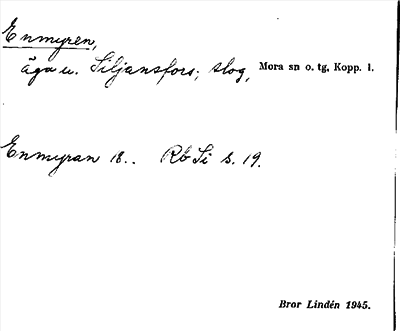 Enmyren,
äga u. Siljansfors; skog, Mora sn o. tg, Kopp. l.
Enmyran 18.. Rö Si s. 19.
Bror Lindén 1945.